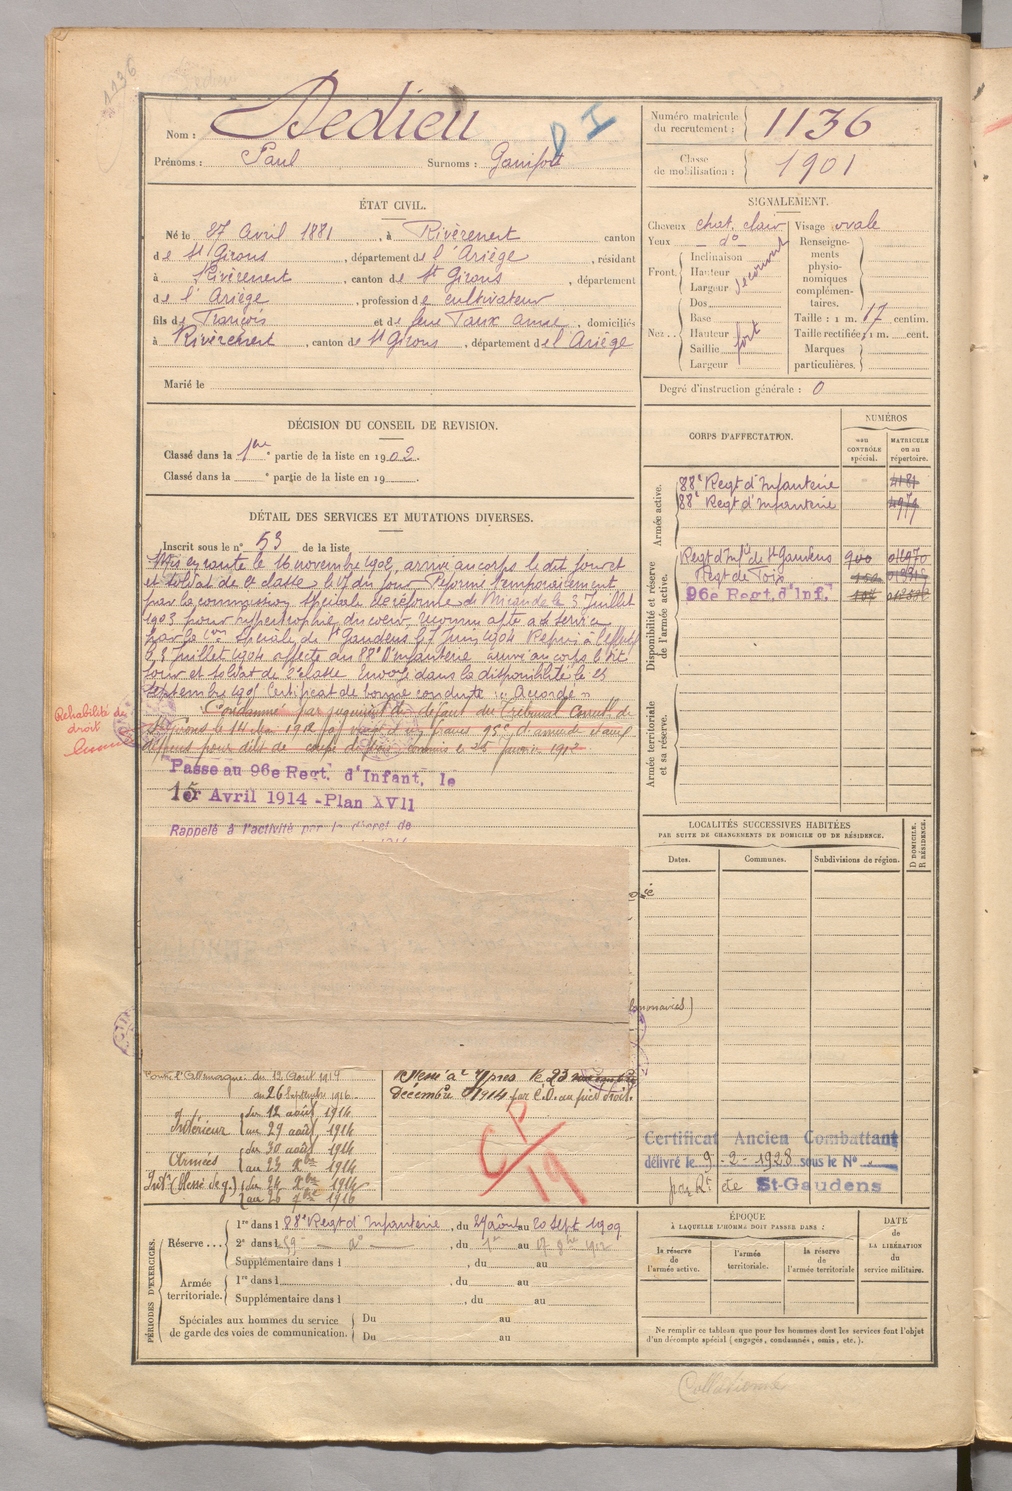 1136
Nom : Dedieu
D I
Prénoms : Paul Surnoms :
Numéro matricule du recrutement : 1136
Classe de mobilisation : 1901
ÉTAT CIVIL.
Né le 27 Avril 1881, à Rivèrenert canton
de St Girons, département de l'Ariège, résidant
à Rivèrenert, canton de St Girons, département
de l'Ariège, profession de cultivateur
fils de François et de feue Taux Anne, domiciliés
à Rivèrenert, canton de St Girons, département de l'Ariège
Marié le
SIGNALEMENT.
Cheveux chat. clair
Yeux - d° -
Front.
Inclinaison
Hauteur
Largeur
Nez..
Dos
Base
Hauteur fort
Saillie
Largeur
Visage ovale
Renseignements physionomiques complémentaires.
Taille : 1 m. 17 centim.
Taille rectifiée : 1 m. cent.
Marques particulières.
Degré d'instruction générale : 0
DÉCISION DU CONSEIL DE REVISION.
Classé dans la 1re partie de la liste en 1902.
Classé dans la e partie de la liste en 19
DÉTAIL DES SERVICES ET MUTATIONS DIVERSES.
Inscrit sous le n° 53 de la liste
Mis en route le 16 novembre 1902, arrivé au corps le dit jour et
et soldat de 2e classe le 17 du jour Réformé temporairement
par la commission spéciale de réforme de Mirande le 3 Juillet
1903 pour hypertrophie du coeur. Reconnu apte au service
par la con spéciale de St Gaudens le 7 Juin 1904
Juillet 1904 affecté au 88e d'Infanterie arrivé au corps le dit
jour et soldat de 2e classe Envoyé dans la disponibilité le 23
Septembre 1905 Certificat de bonne conduite "Accordé"
Condamné par jugement de défaut du Tribunal Correct. de
St Girons le 14 Mai 1912 d'amende et aux
dépens pour délit de coupe de commis le 25 Janvier 1912
Réhabilité de droit
Passe au 96e Regt. d'Infant. le
1er Avril 1914 - Plan XVII
Rappelé à l'activité par le décret de
CORPS D'AFFECTATION.
NUMÉROS
au CONTRÔLE spécial.
MATRICULE ou au répertoire.
Armée active.
88e Regt d'Infanterie
88e Regt d'Infanterie
Disponibilité et réserve de l'armée active.
Regt d'Infie de St Gaudens
Regt de Foix
96e Regt. d'Inf.
Armée territoriale et sa réserve.
LOCALITÉS SUCCESSIVES HABITÉES
PAR SUITE DE CHANGEMENTS DE DOMICILE OU DE RÉSIDENCE.
Dates.
Communes.
Subdivisions de région.
D DOMICILE. R RÉSIDENCE.
Contre l'Allemagne: du 12 Août 1914
au 26 Septembre 1916
Intérieur du 12 août 1914
au 29 août 1914
Armées du 30 août 1914
au 23 Xbre 1914
Intr (blessé de g.) du 24 Xbre 1914
au 26 7bre 1916
Blessé à Ypres le 23
Décembre 1914 par E.O. au pied droit.
CP/19
Certificat Ancien Combattant
délivré le 9-2-1928 sous le N°
par Rt de St-Gaudens
PÉRIODES D'EXERCICES.
Réserve ...
1re dans l 88e Regt d'Infanterie, du 29 août au 20 Sept 1909
2e dans l 59 - d° -, du 1er au 17 8bre 1912
Supplémentaire dans l , du au
Armée territoriale.
1re dans l , du au
Supplémentaire dans l , du au
Spéciales aux hommes du service de garde des voies de communication.
Du au
Du au
ÉPOQUE
À LAQUELLE L'HOMME DOIT PASSER DANS :
la réserve de l'armée active.
l'armée territoriale.
la réserve de l'armée territoriale
DATE de LA LIBÉRATION du service militaire.
Ne remplir ce tableau que pour les hommes dont les services font l'objet
d'un décompte spécial (engagés, condamnés, omis, etc.).